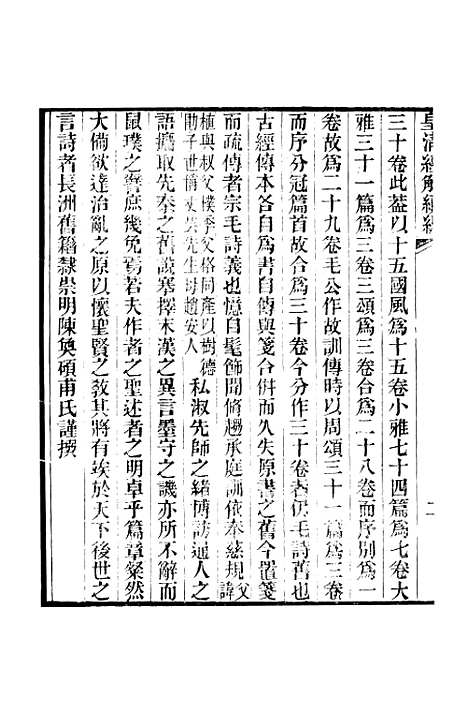 皇清經解續編
二
三十卷此葢以十五國風爲十五卷小雅七十四篇爲七卷大
雅三十一篇爲三卷三頌爲三卷合爲二十八卷而序別爲一
卷故爲二十九卷毛公作故訓傳時以周頌三十一篇爲三卷
而序分冠篇首故合爲三十卷今分作三十卷者仍毛詩舊也
古經傳本各自爲書自傳與箋合併而久失原書之舊今置箋
而疏傳者宗毛詩義也憶自髦飾閒脩趨承庭訓依奉慈規父諱
植與叔父樸季父格同產以樹德
勖子世稱孝崇先生母趙安人私淑先師之緒博訪通人之
語攟取先秦之舊說搴擇末漢之異言墨守之譏亦所不辭而
鼠璞之譽庶幾免焉若夫作者之聖述者之明卓乎篇章粲然
大備欲達治亂之原以懷聖賢之敎其將有竢於天下後世之
言詩者長洲舊籍隸崇明陳奐碩甫氏謹撰